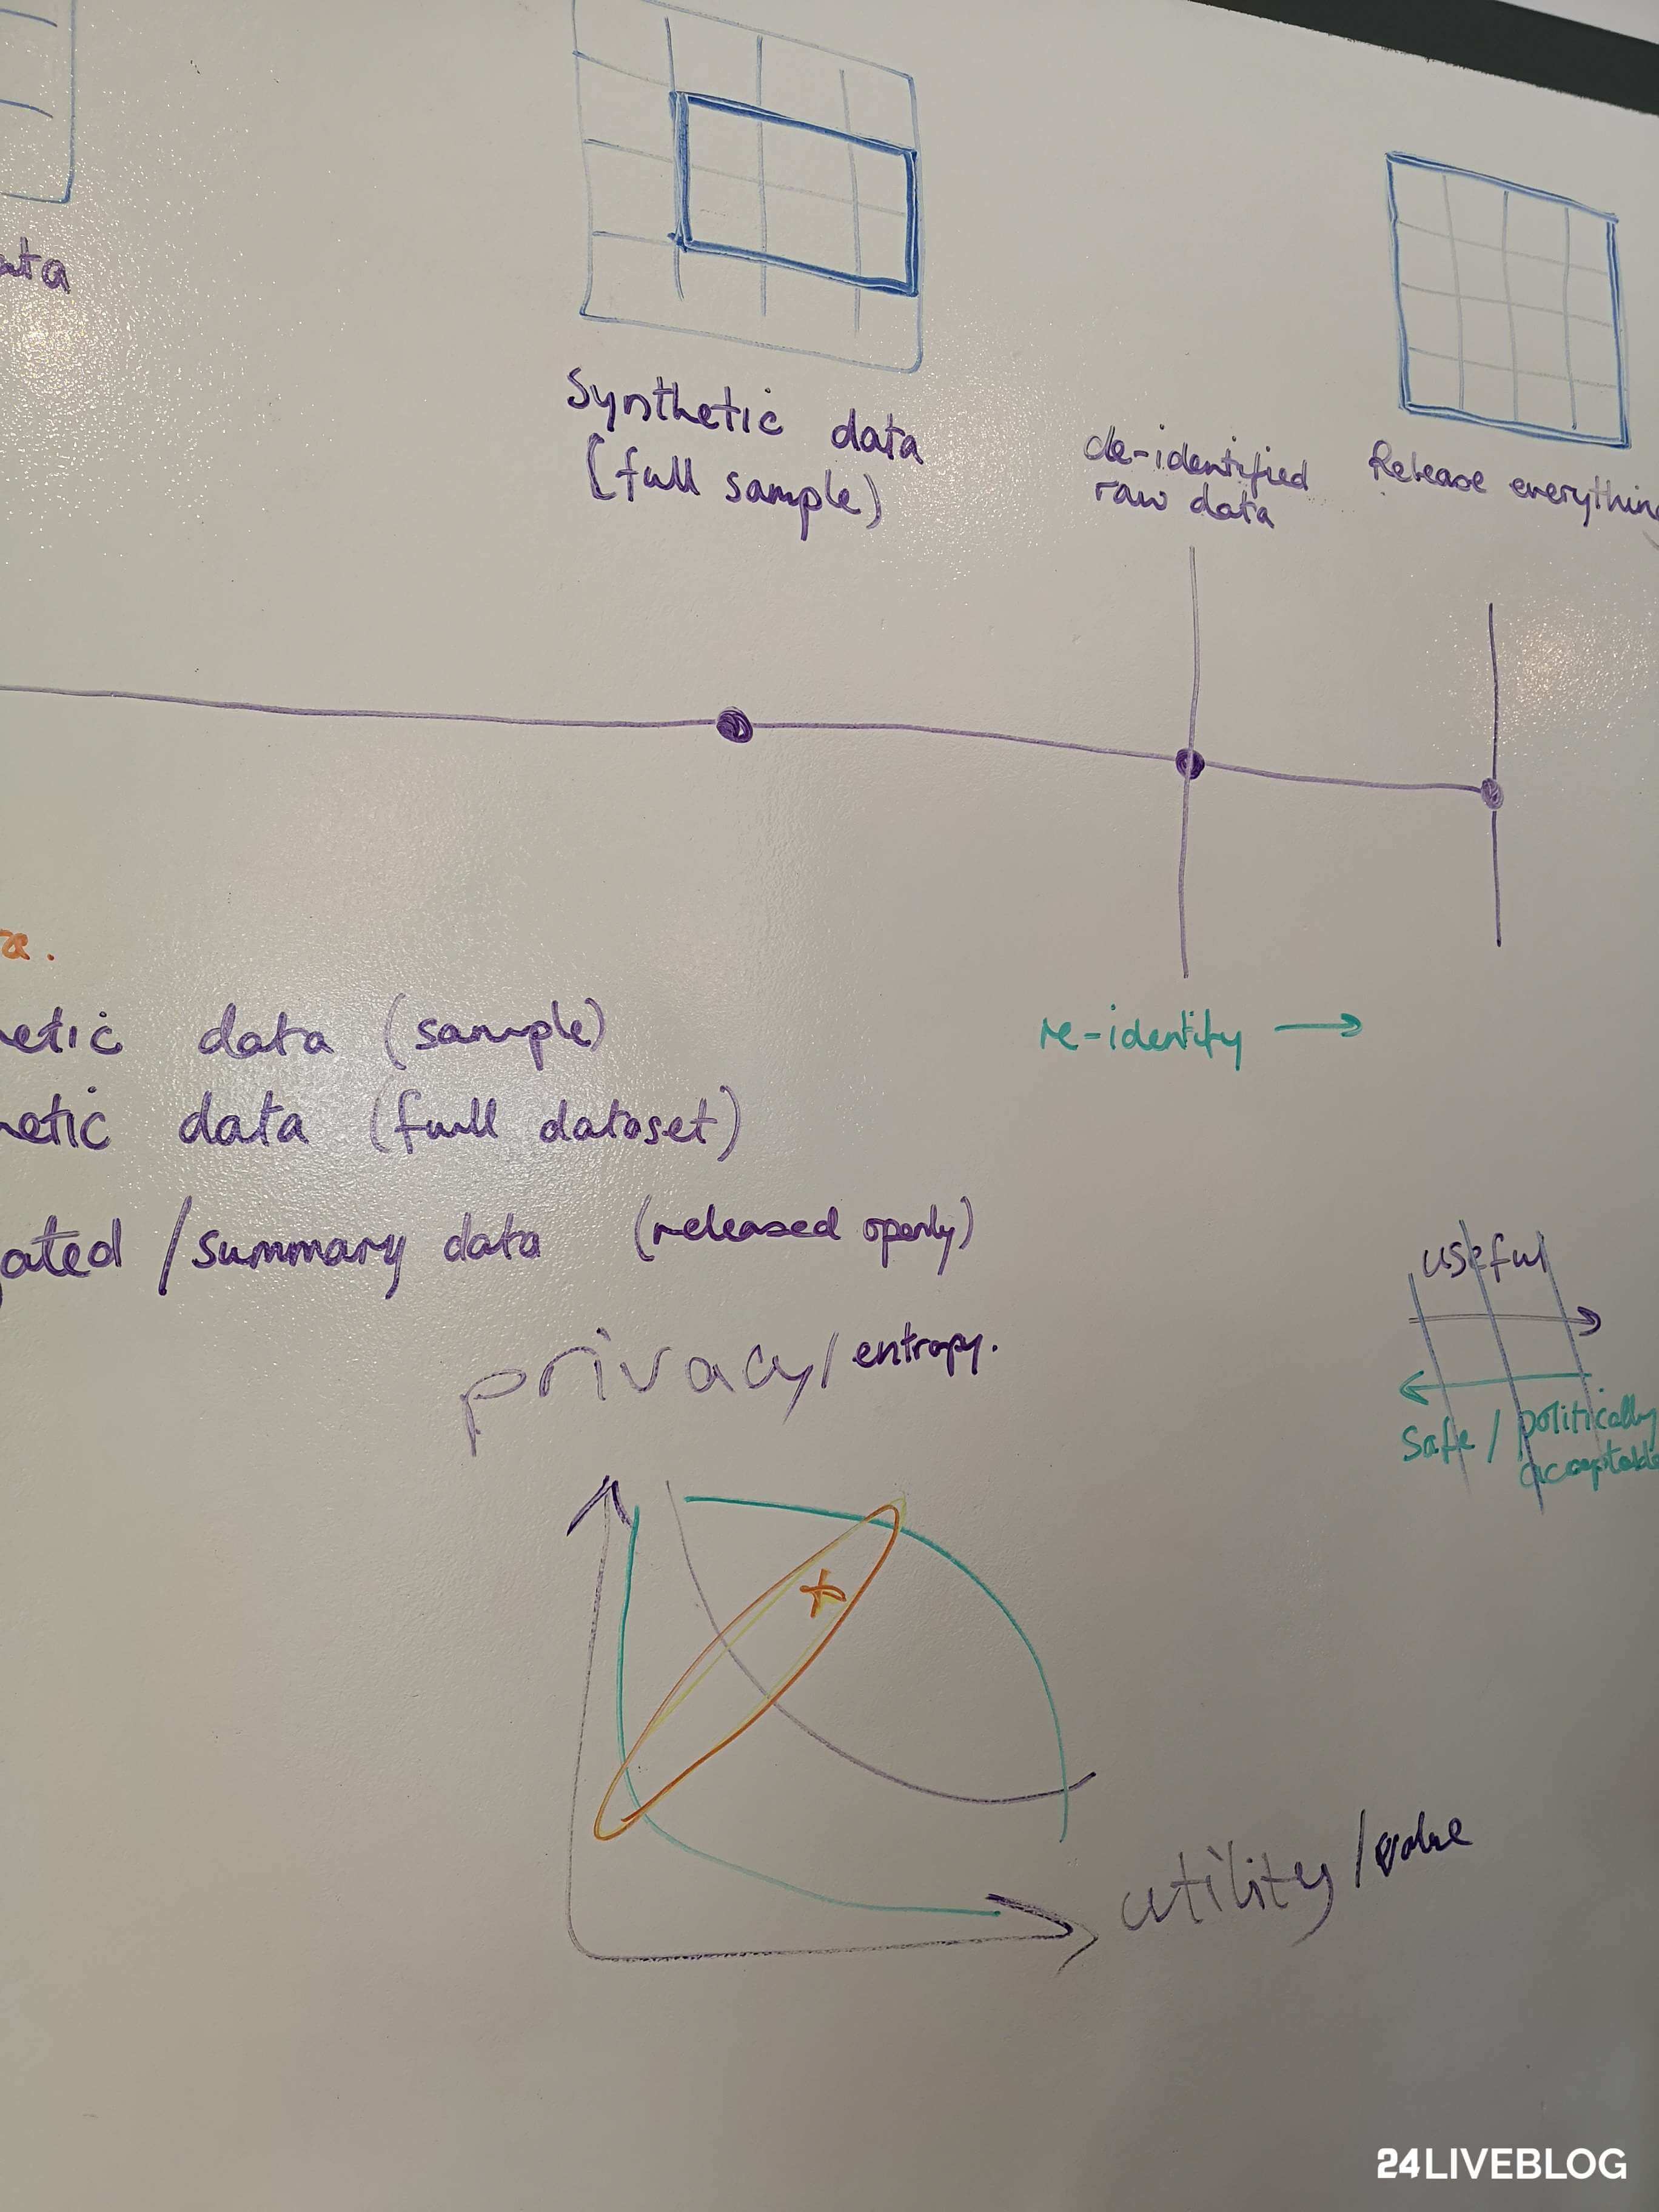 ata
Synthetic data
(full sample)
de-identified
raw data
Release everything
a.
netic data (sample)
re-identify
netic data (full dataset)
gated /summary data (released openly)
useful
privacy/entropy.
Safe / politically
acceptable
utility/value
24LIVEBLOG